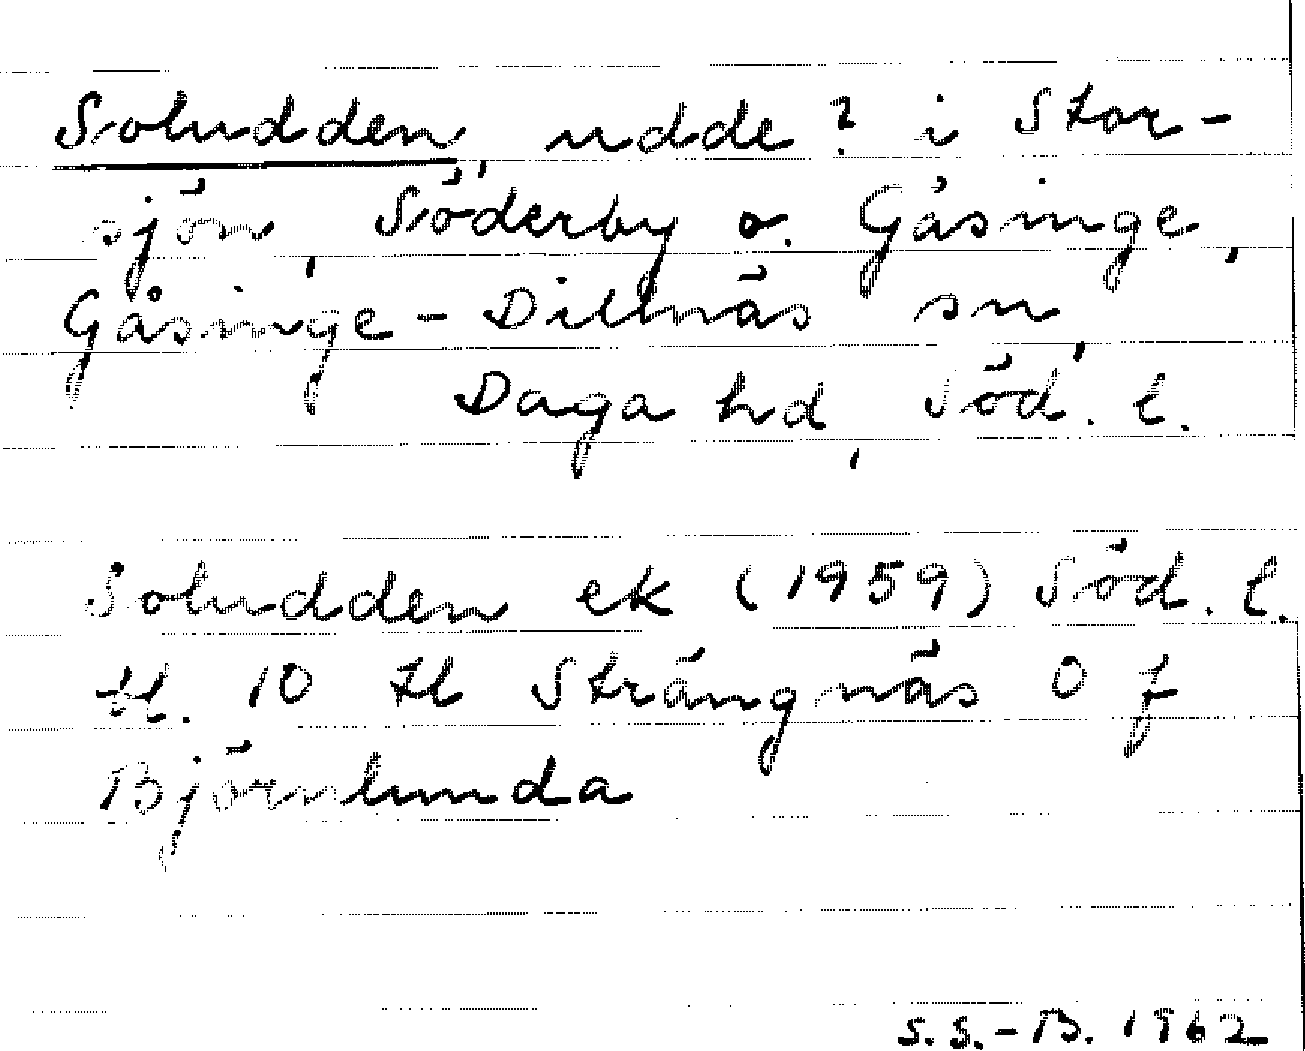 Soludden, udde? i Stor-
sjön, Söderby o. Gåsinge,
Gåsinge-Dillnäs sn,
Daga hd, Söd. l.
Soludden ek (1959) Söd. l.
bl. 10 tb Strängnäs O f
Björnlunda
S.S.-B. 1962